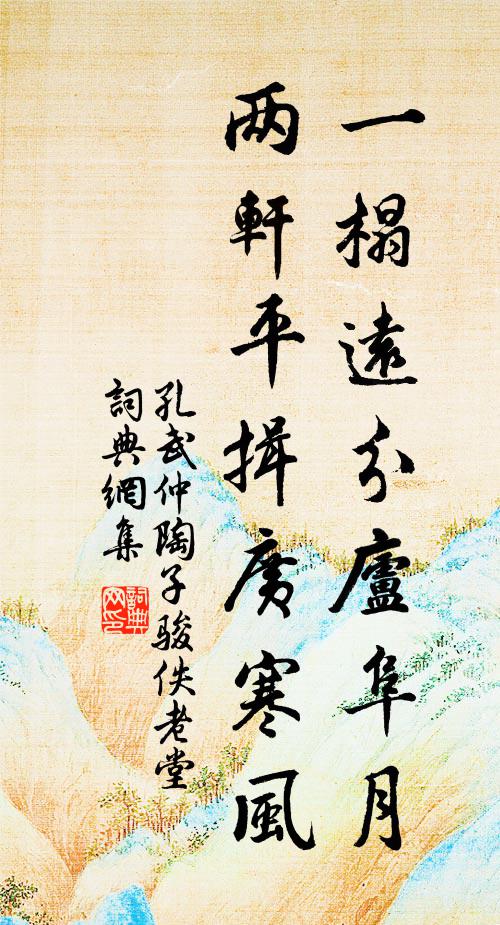 一榻遠分廬阜月
两軒平揖廣寒風
孔武仲陶子骏佚老堂
詞典網集
詞典
网印